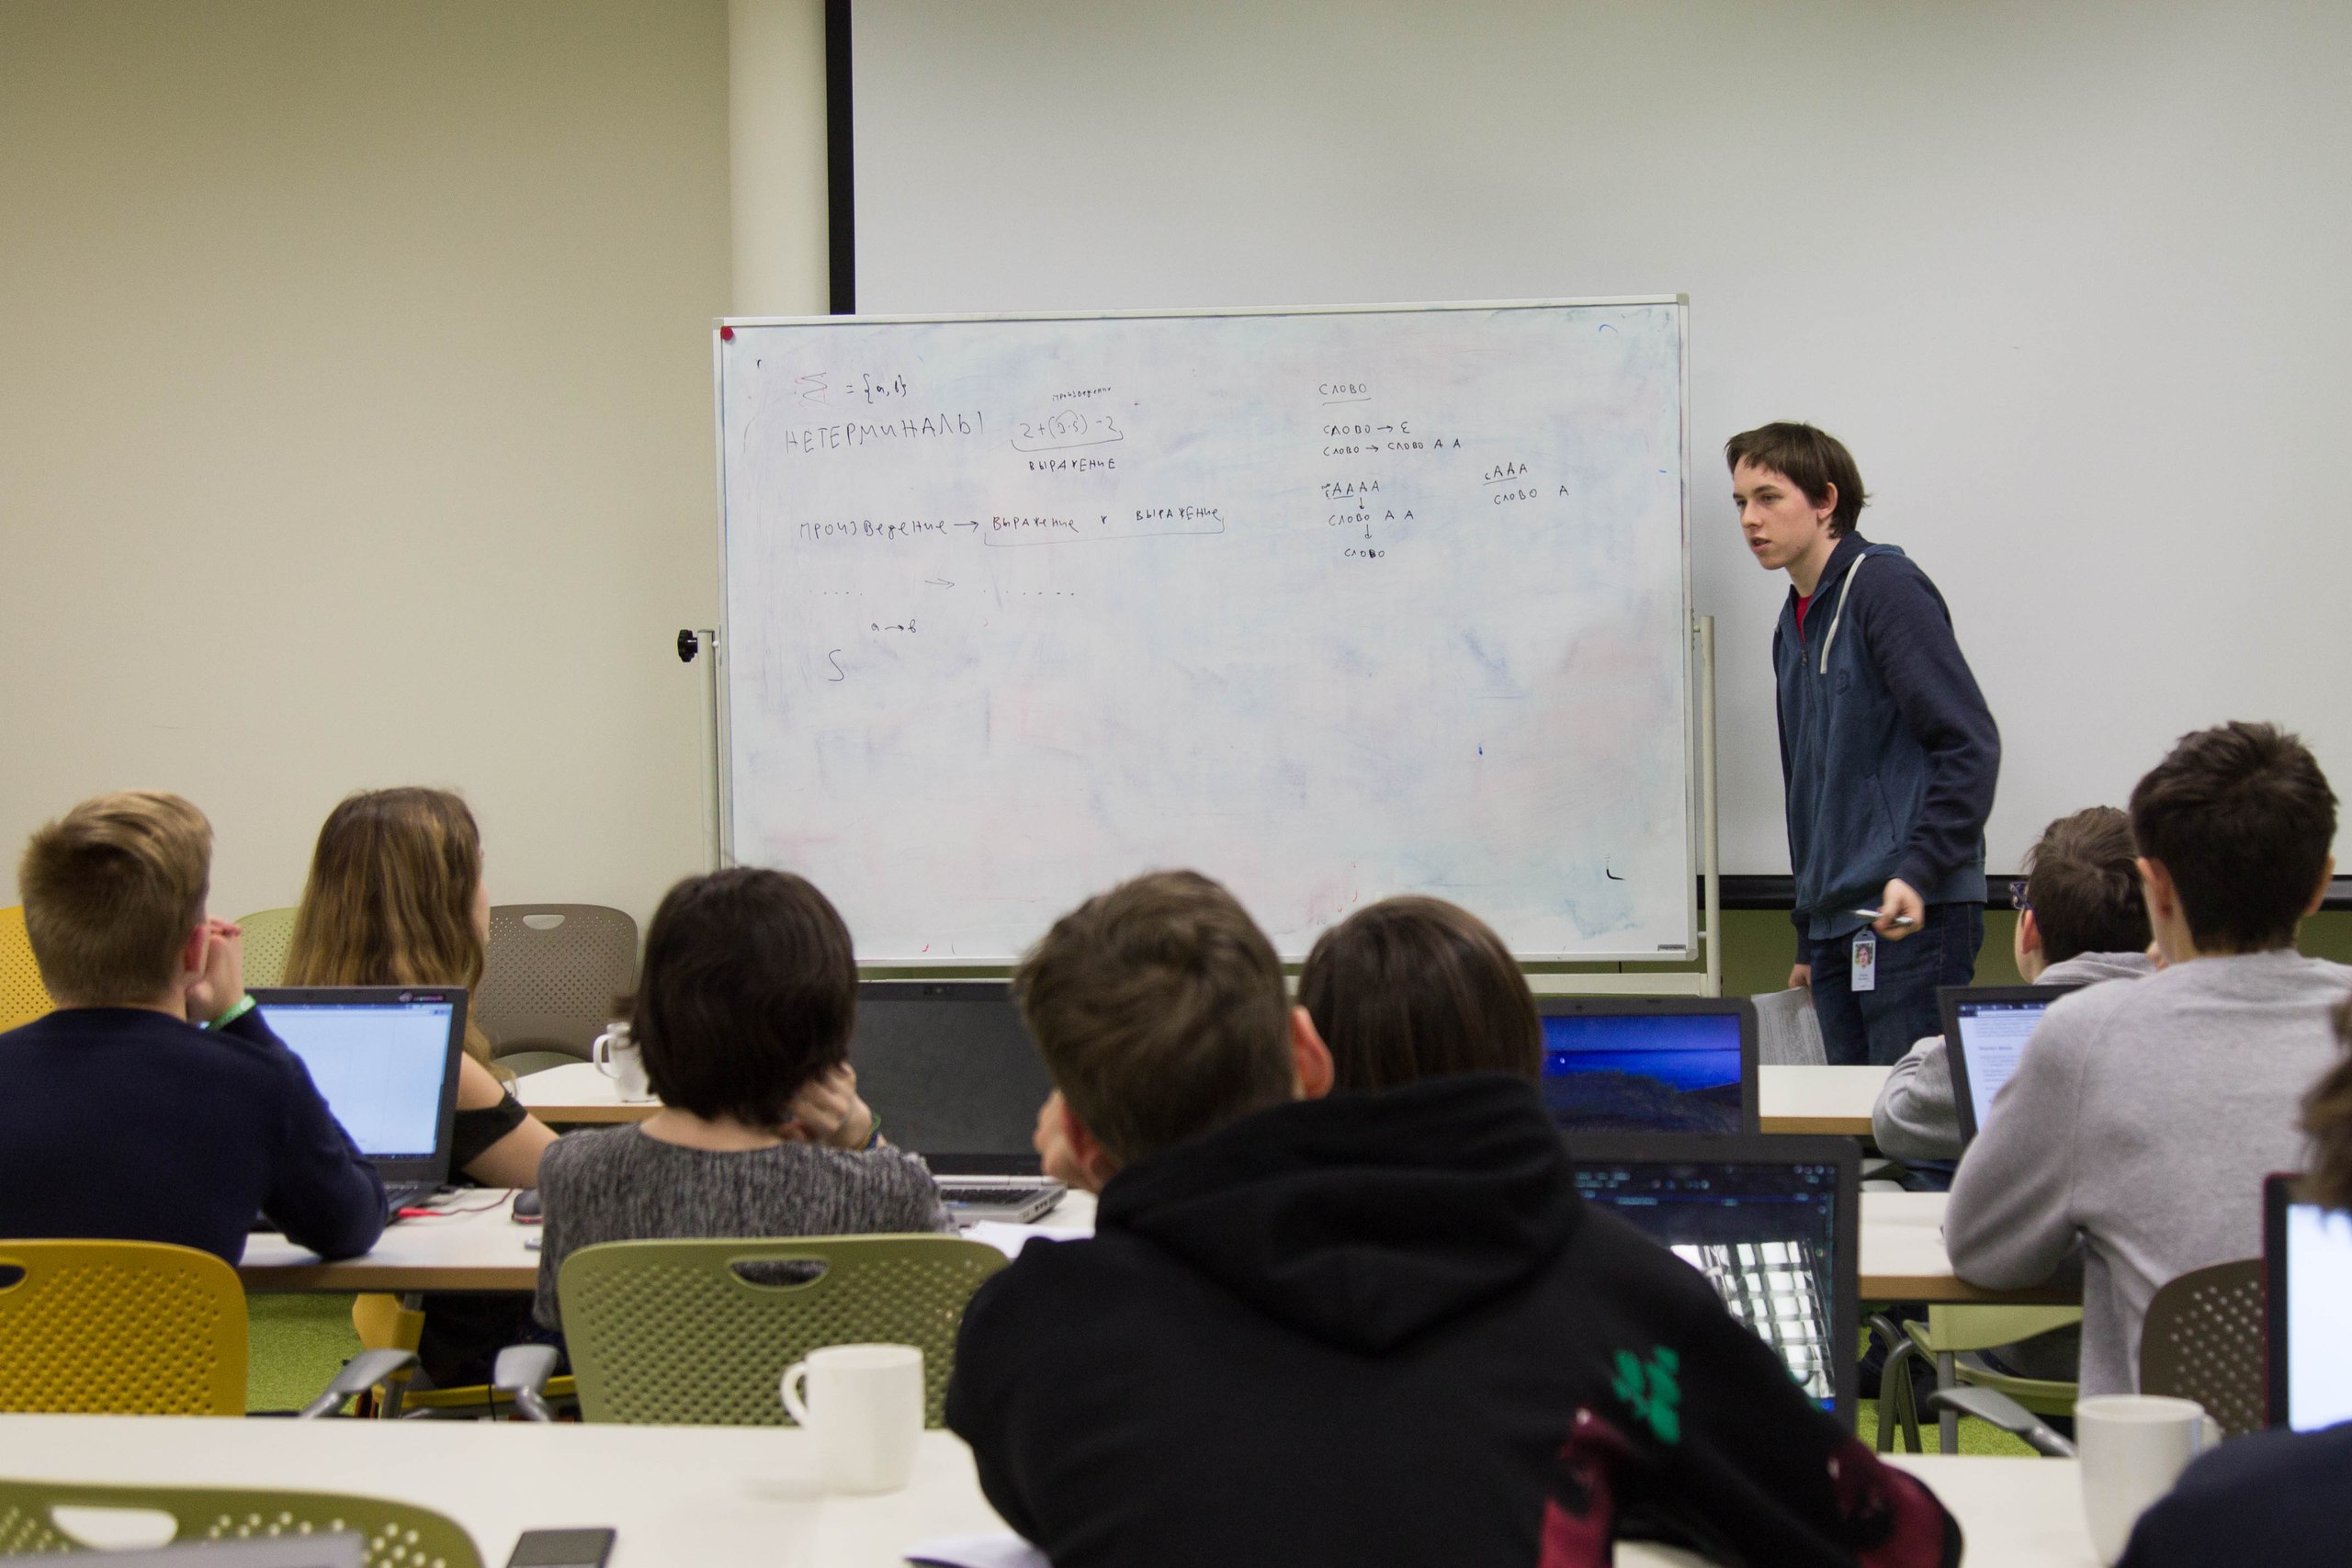 Σ = {a, b}
НЕТЕРМИНАЛЫ
произведение
2+(3·5)-2
ВЫРАЖЕНИЕ
ПРОИЗВедеНИе → ВЫРАЖеНИе × ВЫРАЖЕНИе
.... → ......
a → b
S
СЛОВО
СЛОВО → ε
СЛОВО → СЛОВО А А
АААА
СЛОВО А А
СЛОВО
ААА
СЛОВО А